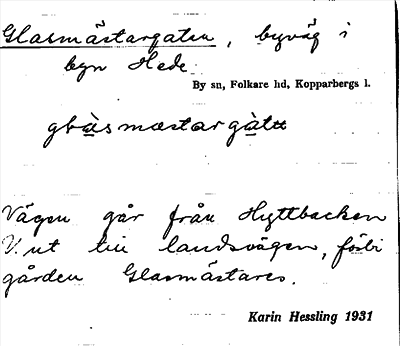 Glasmästargatan, byväg i
byn Hede.
By sn, Folkare hd, Kopparbergs l.
Vägen går från Hyttbacken
V. ut till landsvägen, förbi
gården Glasmästares.
Karin Hessling 1931